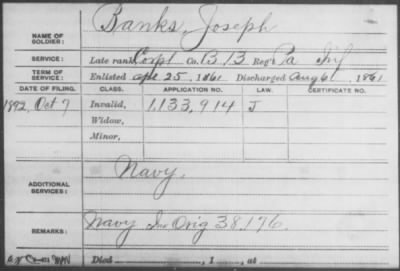 NAME OF SOLDIER: Banks, Joseph
SERVICE: Late rank Corpl Co. B. 13 Reg't Pa Inf
TERM OF SERVICE: Enlisted Apr 25, 1861 Discharged Aug 6, 1861
DATE OF FILING. CLASS. APPLICATION NO. LAW. CERTIFICATE NO.
1892, Oct 7 Invalid, 1,133,914 J
Widow,
Minor,
ADDITIONAL SERVICES: Navy.
REMARKS: Navy Inv Orig 38,176.
Died , 1 , at